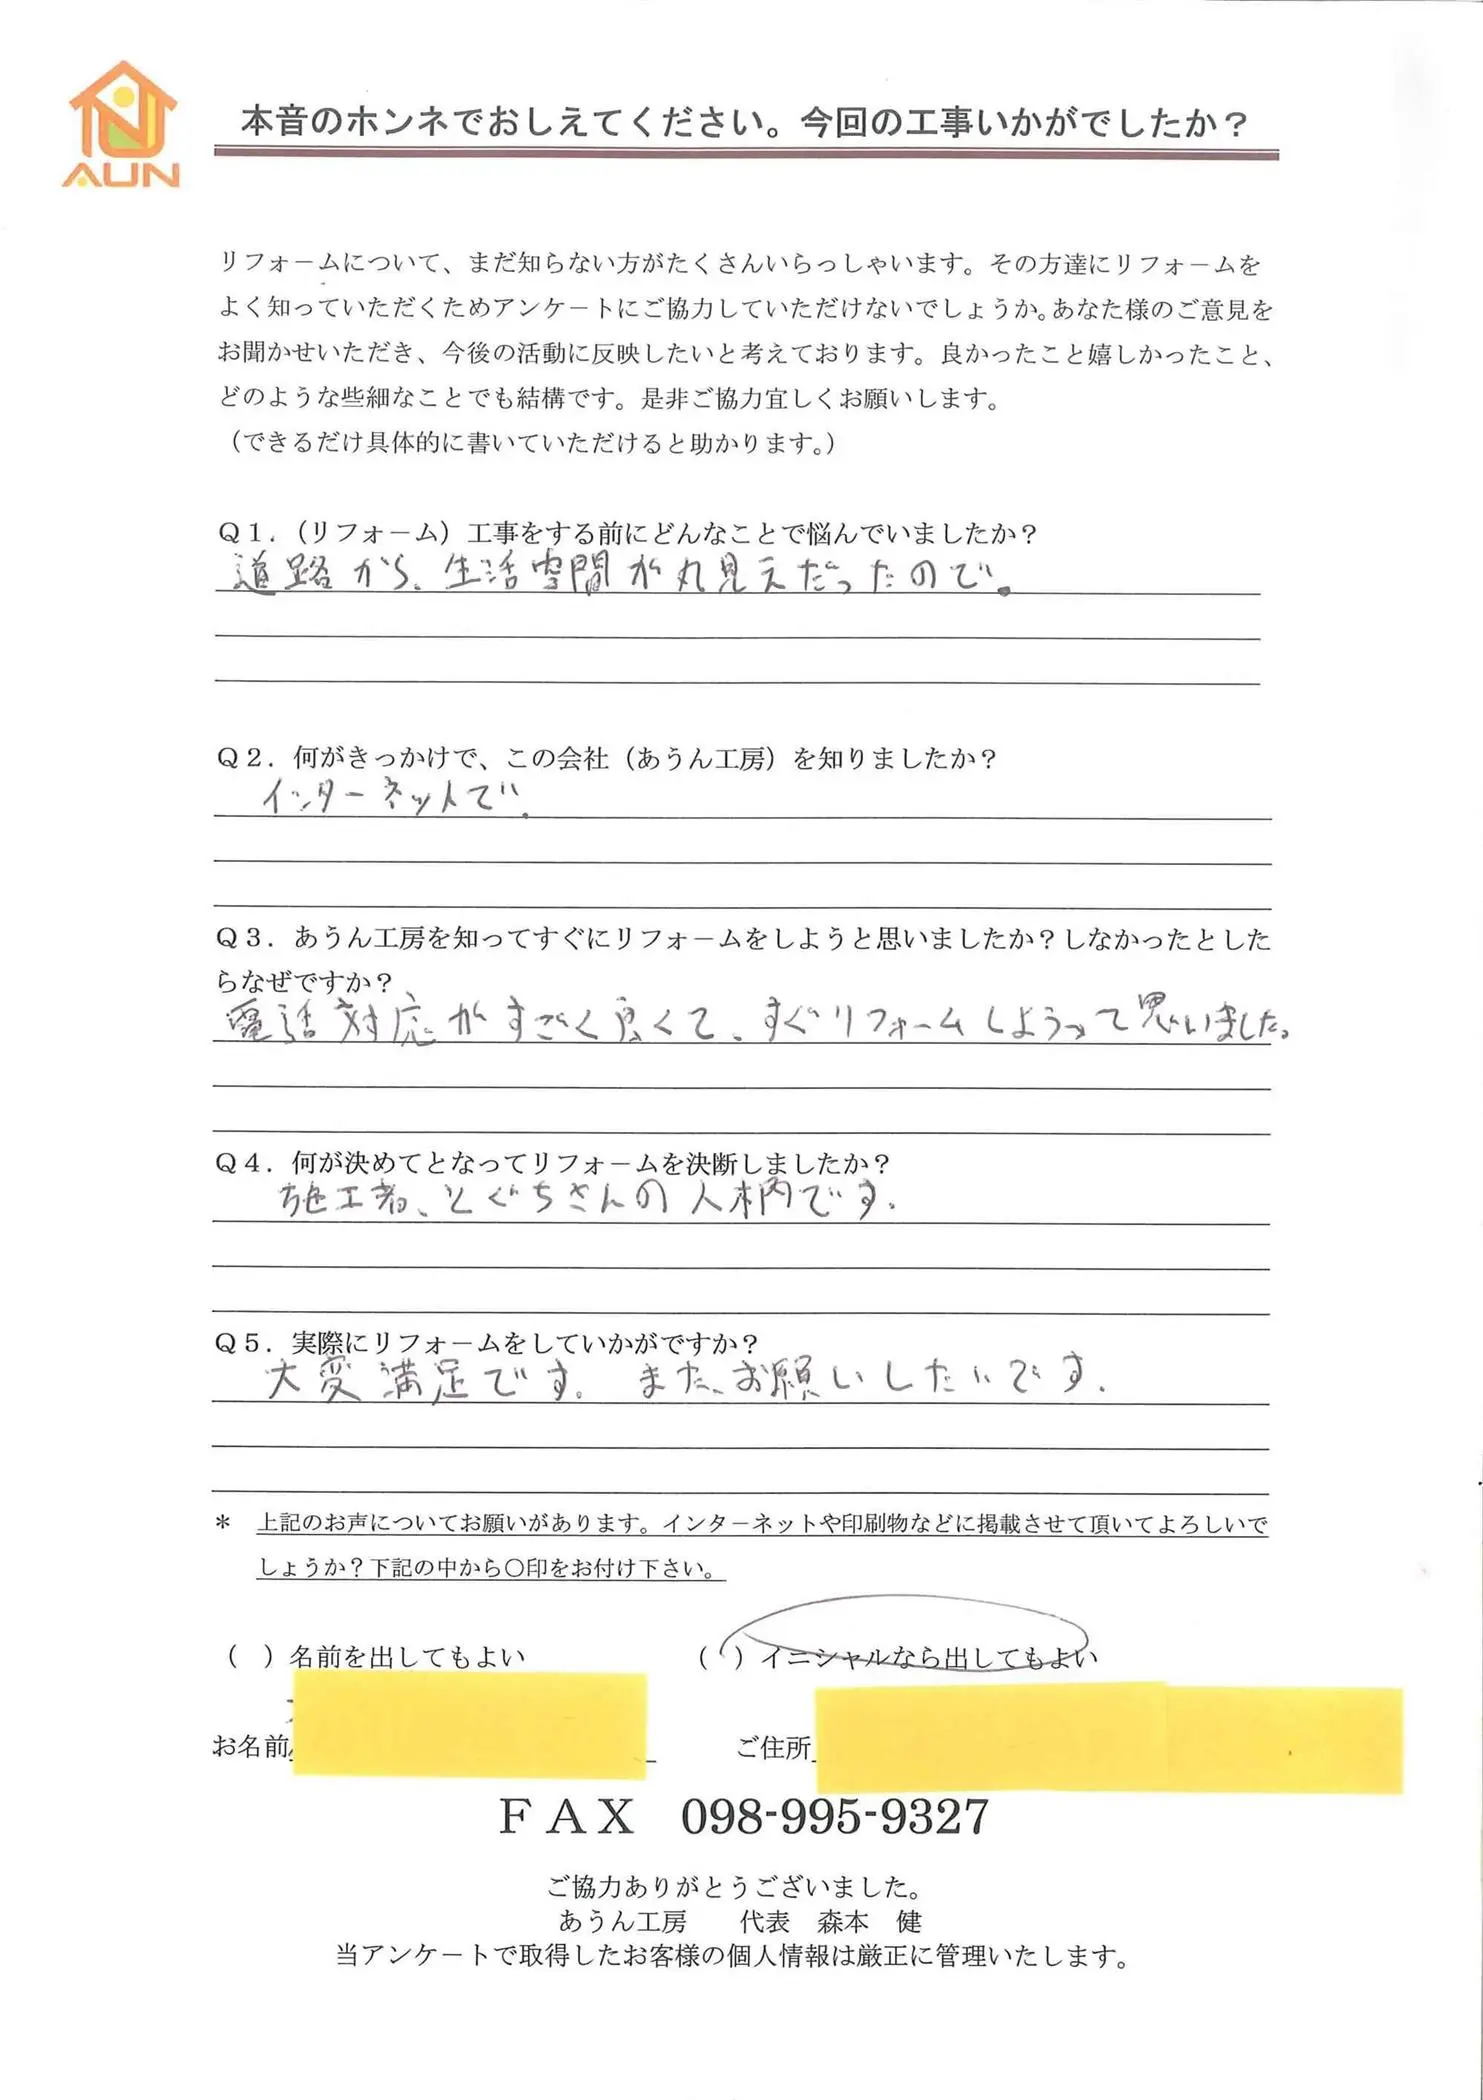 AUN
本音のホンネでおしえてください。今回の工事いかがでしたか？
リフォームについて、まだ知らない方がたくさんいらっしゃいます。その方達にリフォームを
よく知っていただくためアンケートにご協力していただけないでしょうか。あなた様のご意見を
お聞かせいただき、今後の活動に反映したいと考えております。良かったこと嬉しかったこと、
どのような些細なことでも結構です。是非ご協力宜しくお願いします。
（できるだけ具体的に書いていただけると助かります。）
Ｑ１．（リフォーム）工事をする前にどんなことで悩んでいましたか？
道路から、生活空間が丸見えだったので。
Ｑ２．何がきっかけで、この会社（あうん工房）を知りましたか？
インターネットで。
Ｑ３．あうん工房を知ってすぐにリフォームをしようと思いましたか？しなかったとした
らなぜですか？
電話対応がすごく良くて、すぐリフォームしようって思いました。
Ｑ４．何が決めてとなってリフォームを決断しましたか？
施工者、とぐちさんの人柄です。
Ｑ５．実際にリフォームをしていかがですか？
大変満足です。また、お願いしたいです。
＊　上記のお声についてお願いがあります。インターネットや印刷物などに掲載させて頂いてよろしいで
しょうか？下記の中から〇印をお付け下さい。
（　）名前を出してもよい　（　）イニシャルなら出してもよい
お名前　ご住所
ＦＡＸ　098-995-9327
ご協力ありがとうございました。
あうん工房　代表　森本　健
当アンケートで取得したお客様の個人情報は厳正に管理いたします。